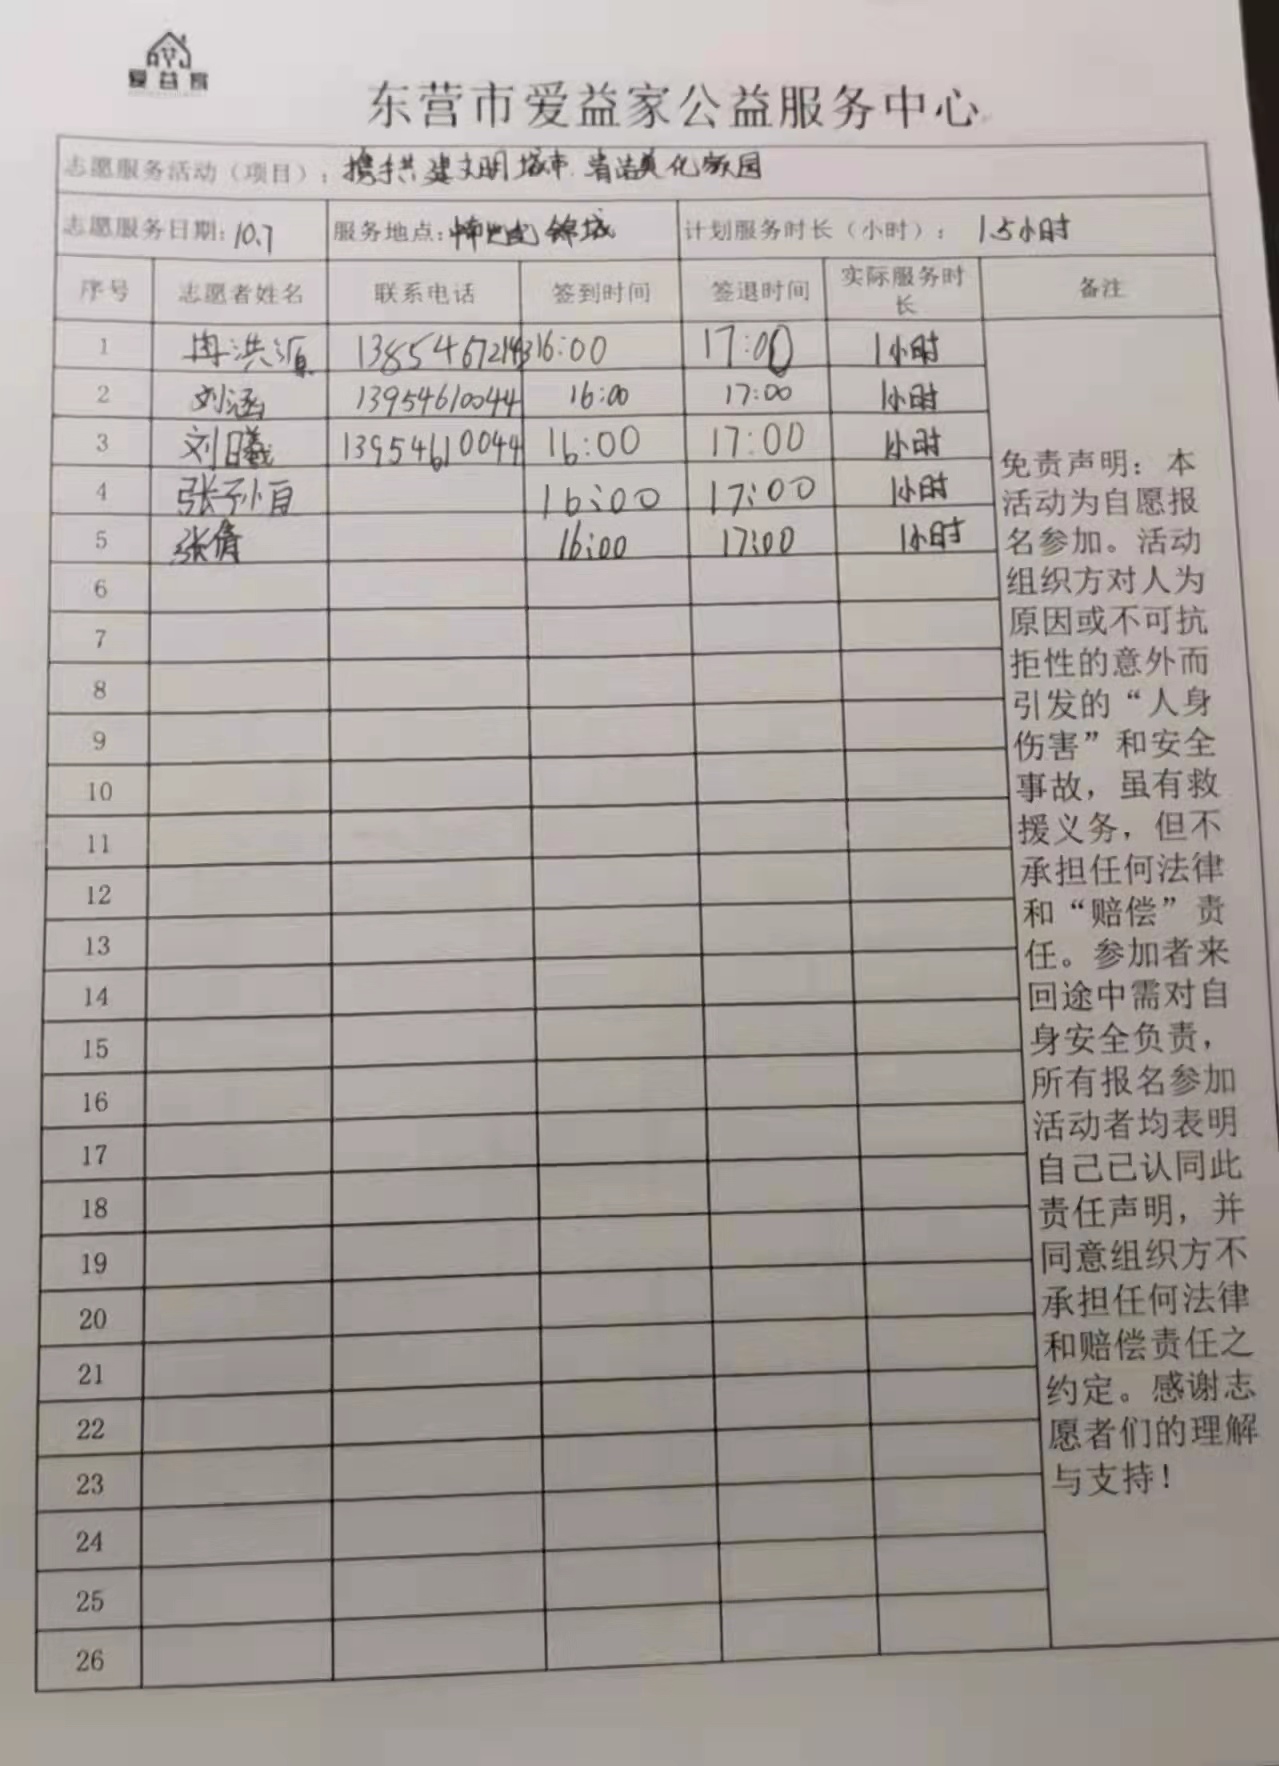 爱益家
东营市爱益家公益服务中心
志愿服务活动（项目）：携手共建文明城市 清洁美化家园
志愿服务日期：10.7 服务地点： 锦城 计划服务时长（小时）： 1.5小时
序号 志愿者姓名 联系电话 签到时间 签退时间 实际服务时长 备注
1 冉洪源 16:00 17:00 1小时
2 刘涵 13954610044 16:00 17:00 1小时
3 刘曦 13954610044 16:00 17:00 1小时
4 张 16:00 17:00 1小时
5 张倩 16:00 17:00 1小时
6
7
8
9
10
11
12
13
14
15
16
17
18
19
20
21
22
23
24
25
26
免责声明：本
活动为自愿报
名参加。活动
组织方对人为
原因或不可抗
拒性的意外而
引发的“人身
伤害”和安全
事故，虽有救
援义务，但不
承担任何法律
和“赔偿”责
任。参加者来
回途中需对自
身安全负责，
所有报名参加
活动者均表明
自己己认同此
责任声明，并
同意组织方不
承担任何法律
和赔偿责任之
约定。感谢志
愿者们的理解
与支持！